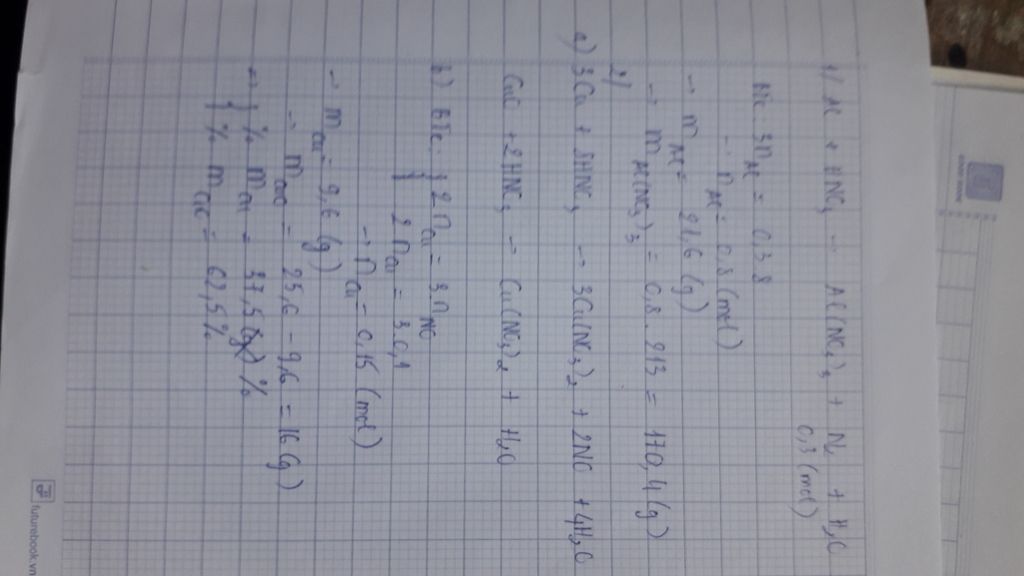 1) Al + HNO₃ → Al(NO₃)₃ + N₂ + H₂O
0,3 (mol)
BTe: 3n_Al = 0,3.8
→ n_Al = 0,8 (mol)
→ m_Al = 21,6 (g)
→ m_Al(NO₃)₃ = 0,8 . 213 = 170,4 (g)
2)
a) 3Cu + 8HNO₃ → 3Cu(NO₃)₂ + 2NO + 4H₂O
CuO + 2HNO₃ → Cu(NO₃)₂ + H₂O
b) BTe: { 2 n_Cu = 3.n_NO
2 n_Cu = 3.0,1
→ n_Cu = 0,15 (mol)
→ m_Cu = 9,6 (g)
→ m_CuO = 25,6 - 9,6 = 16 (g)
→ { % m_Cu = 37,5 %
% m_CuO = 62,5 %
futurebook.vn